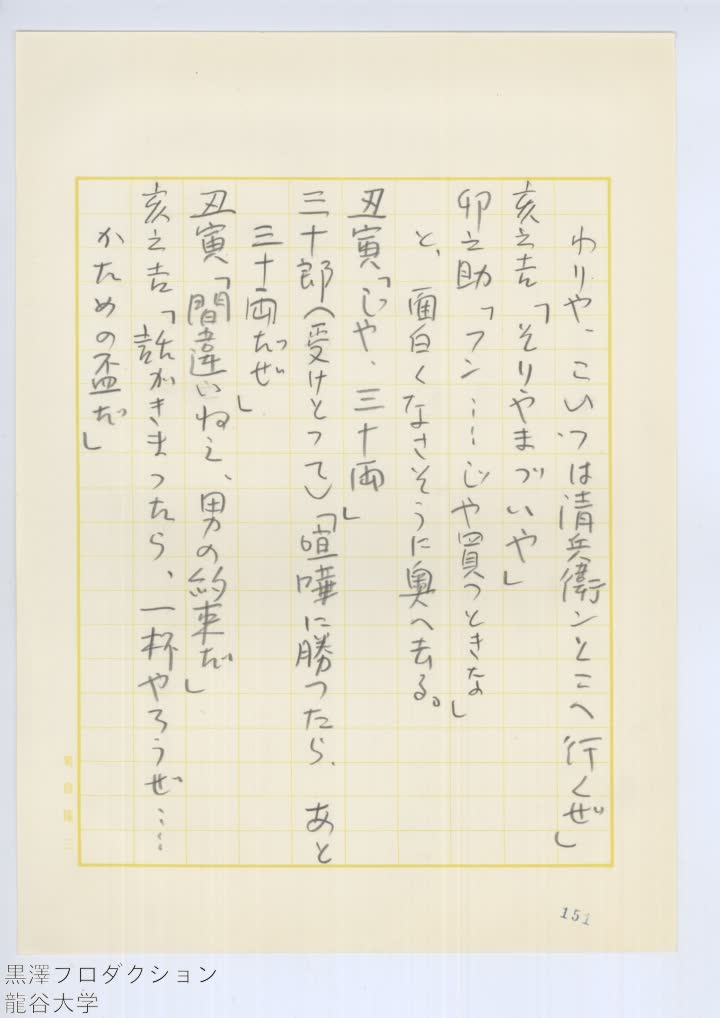 わりや、こいつは清兵衛ンとこへ行くぜ」
亥之吉「そりやまづいや」
卯之助「フン……じや買つときな」
と、面白くなさそうに奥へ去る。
丑寅「じや、三十両」
三十郎（受けとつて）「喧嘩に勝つたら、あと
三十両だつぜ」
丑寅「間違いねえ、男の約束だ」
亥之吉「話がきまつたら、一杯やろうぜ……
かための盃だ」
151
黒澤プロダクション
龍谷大学